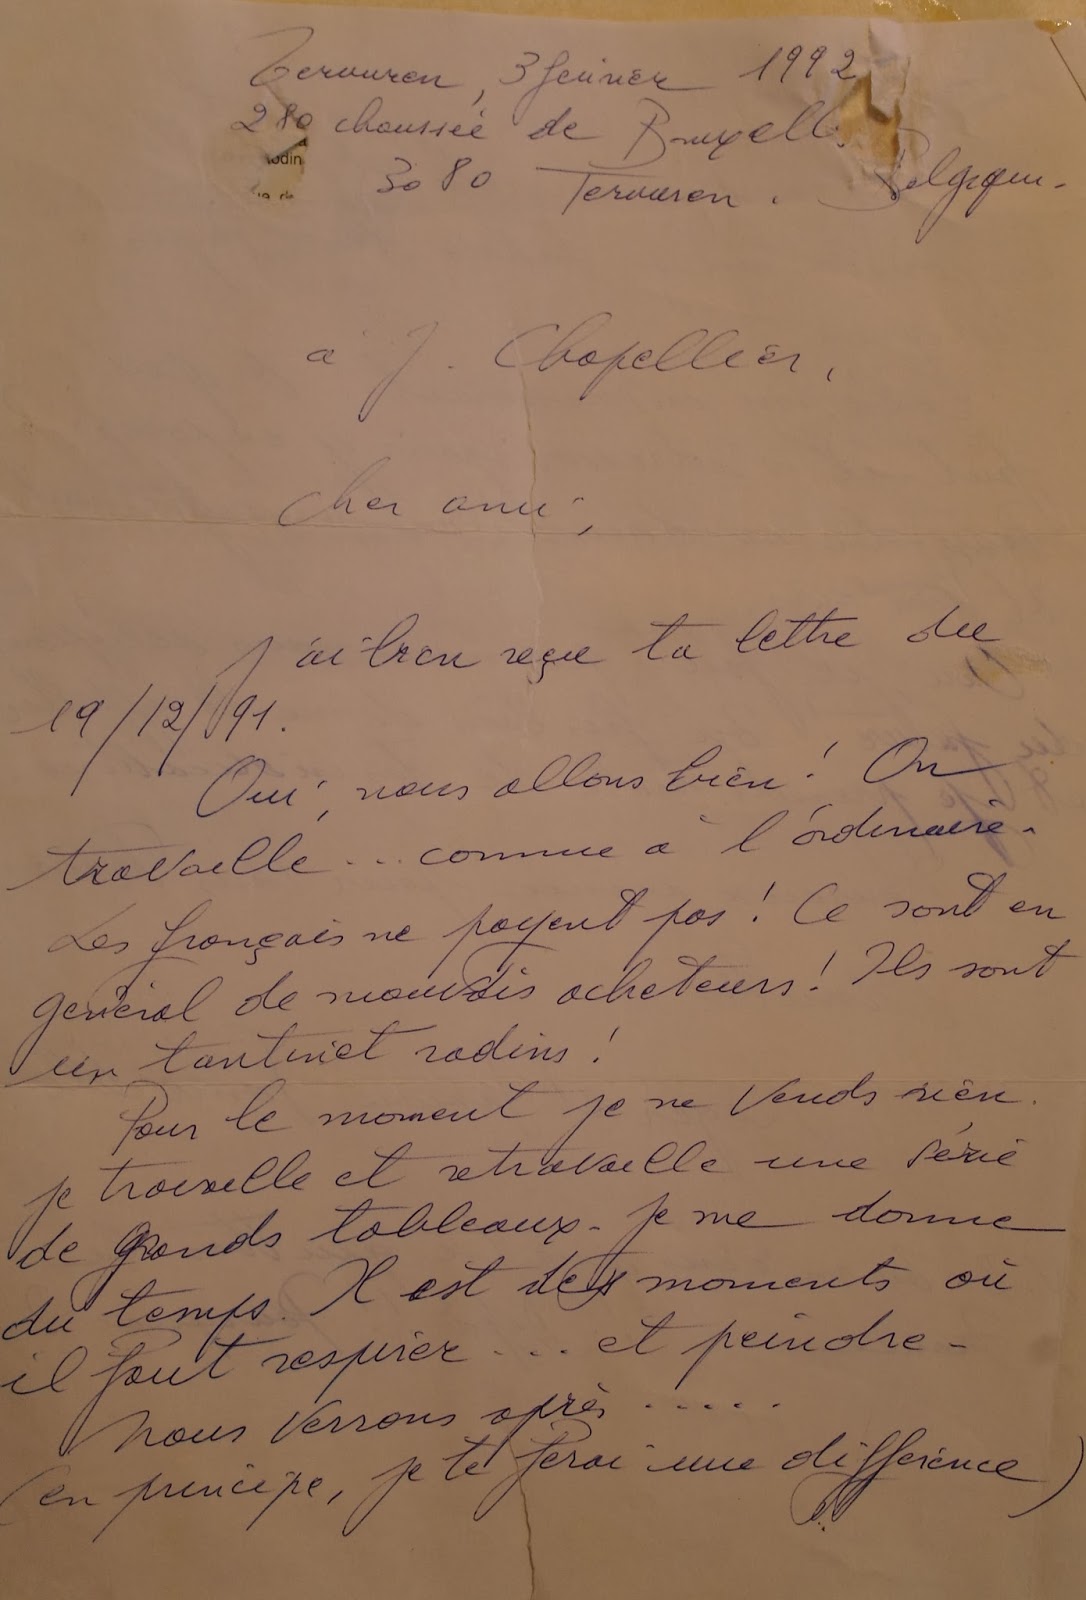 Tervuren, 3 février 1992
280 chaussée de Bruxell
odin
3080 Tervuren. Belgique.
à J. Chapellier,
Cher ami,
J'ai bien reçu ta lettre du
19/12/91.
Oui, nous allons bien! On
travaille... comme à l'ordinaire.
Les français ne payent pas! Ce sont en
général de mauvais acheteurs! Ils sont
un tantinet radins!
Pour le moment je ne vends rien.
je travaille et retravaille une série
de grands tableaux. Je me donne
du temps. Il est des moments où
il faut respirer... et peindre.
Nous verrons après......
(en principe, je te ferai une différence)